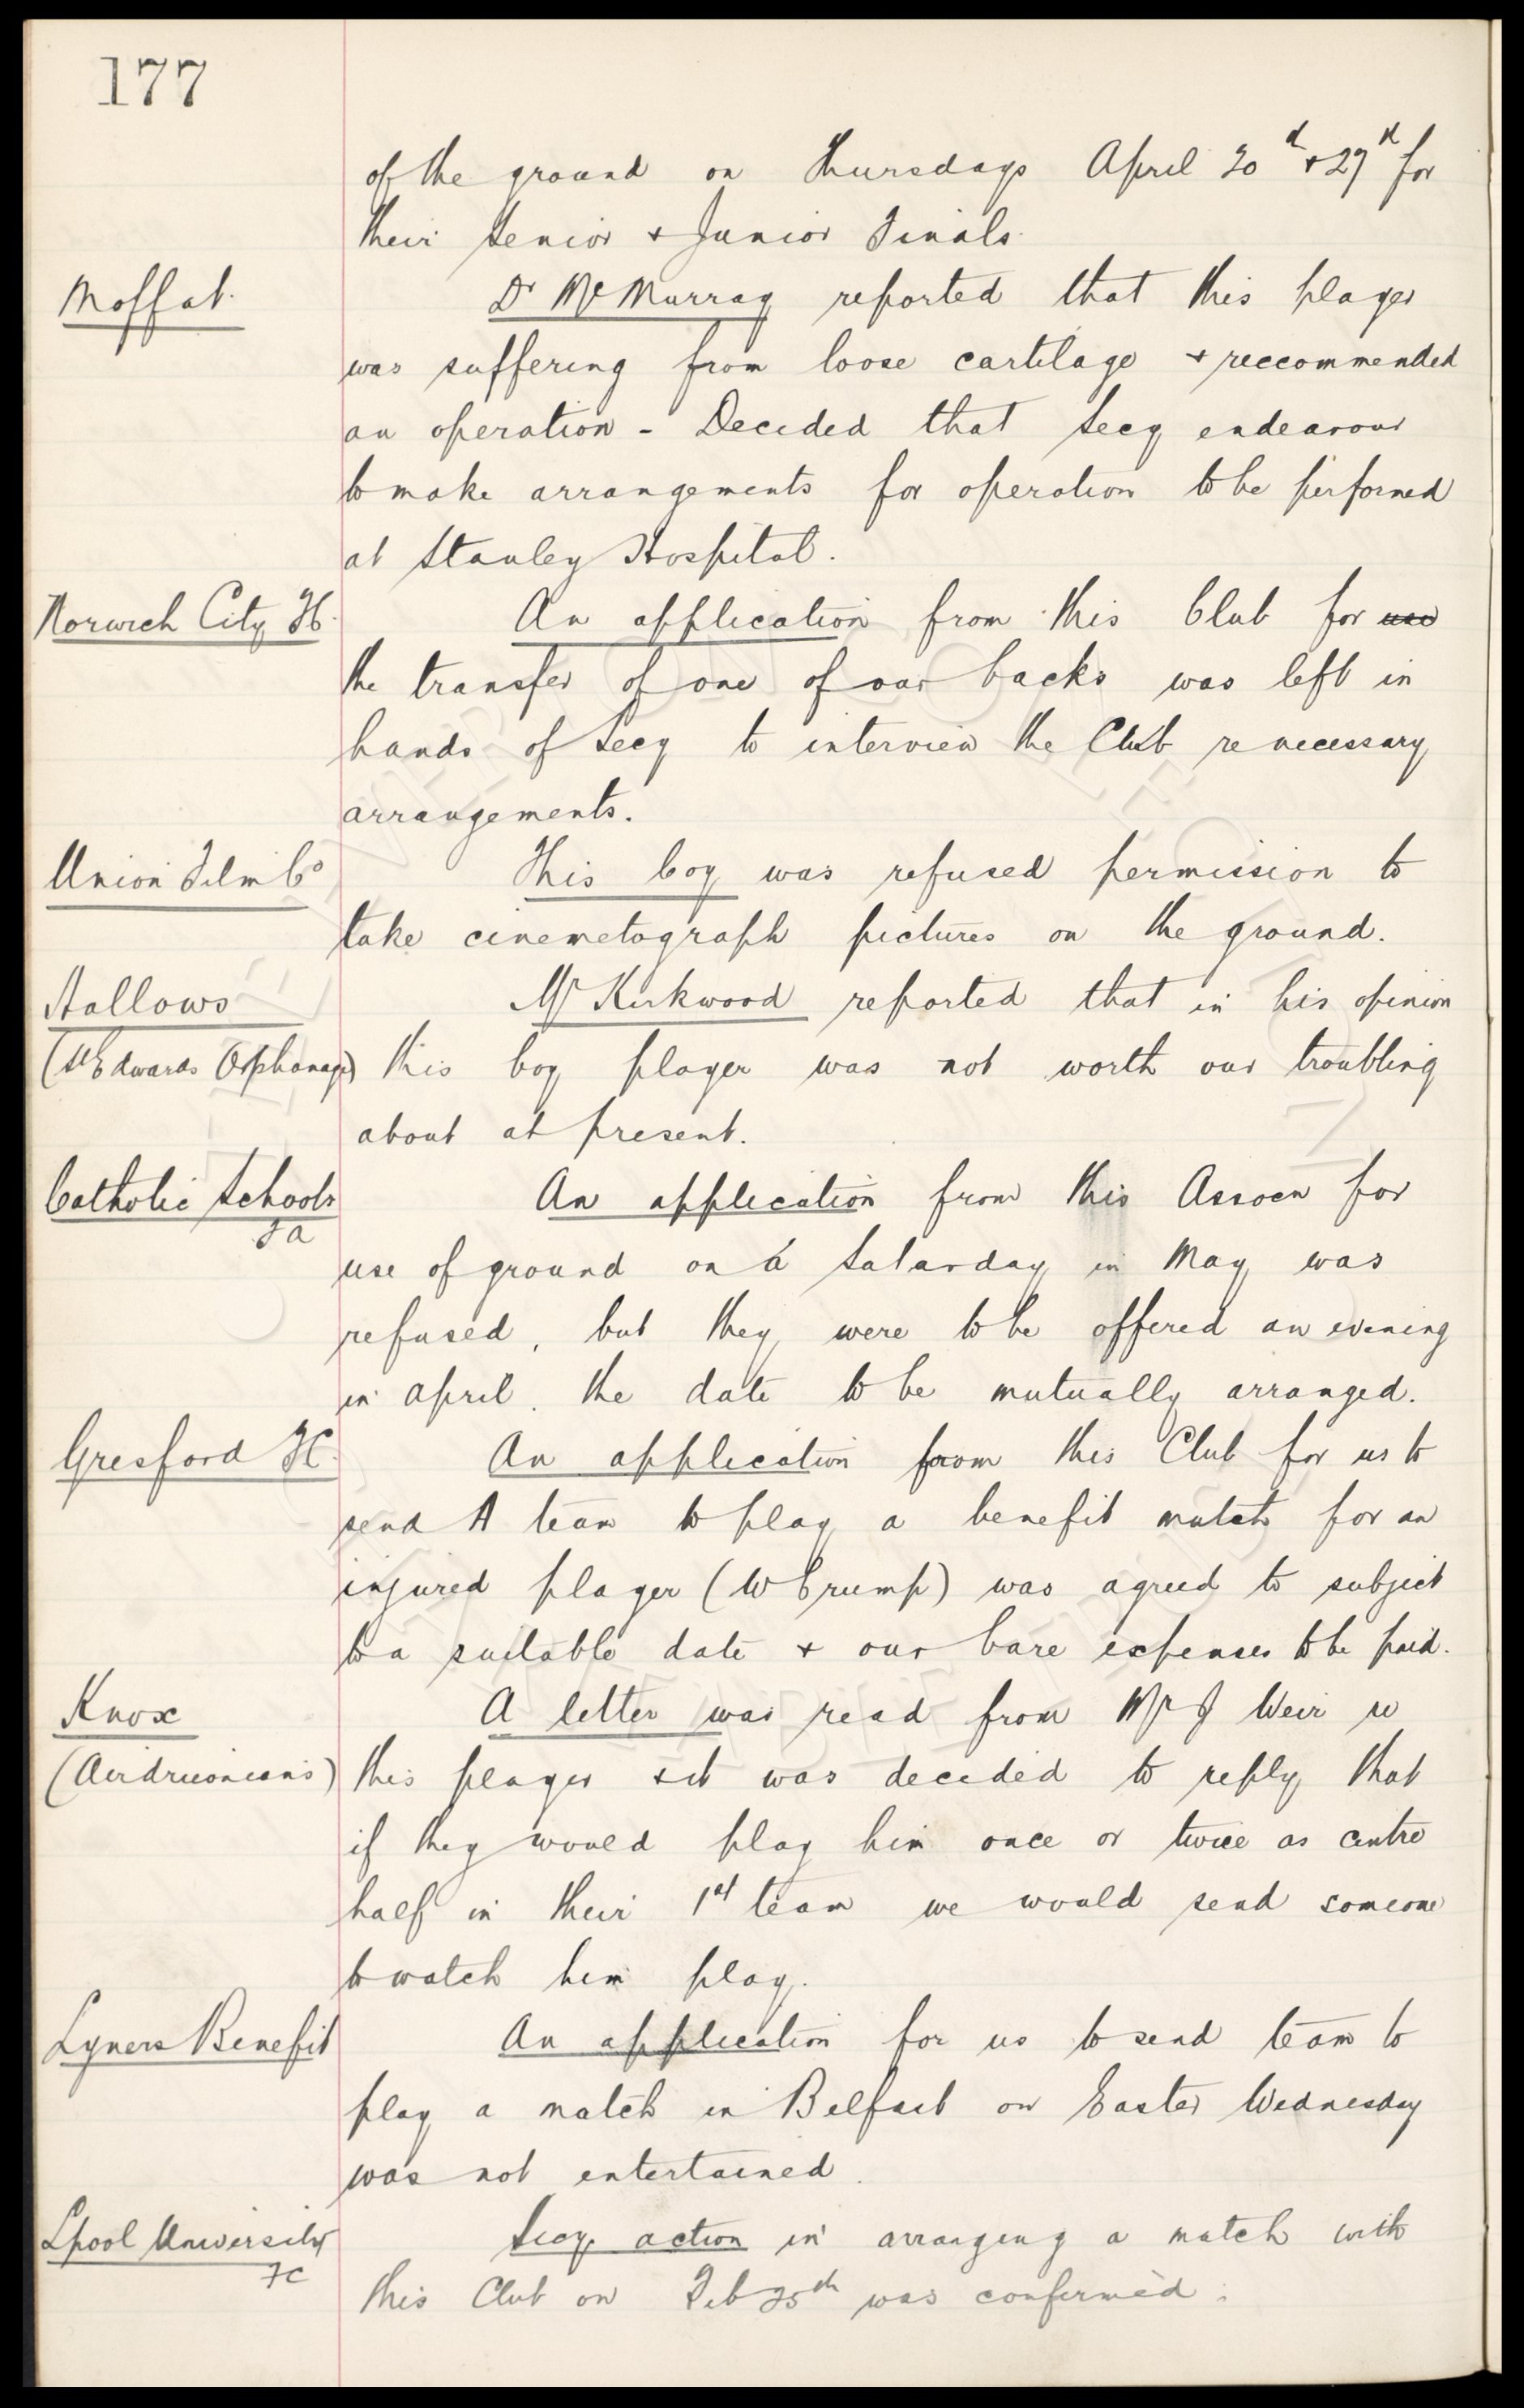 177
of the ground on Thursdays April 20th & 27th for
their Senior & Junior Finals.
Moffat.
Dr McMurray reported that this player
was suffering from loose cartilage & reccommended
an operation - Decided that Secy endeavour
to make arrangements for operation to be performed
at Stanley Hospital.
Norwich City FC.
An application from this Club for use
the transfer of one of our backs was left in
hands of Secy to interview the Club re necessary
arrangements.
Union Film Co
This Coy was refused permission to
take cinemetograph pictures on the ground.
Hallows
(St Edwards Orphanage)
Mr Kirkwood reported that in his opinion
this boy player was not worth our troubling
about at present.
Catholic Schools
FA
An application from this Assocn for
use of ground on a Saturday in May was
refused, but they were to be offered an evening
in April. the date to be mutually arranged.
Gresford FC.
An application from this Club for us to
send A team to play a benefit match for an
injured player (W Crump) was agreed to subject
to a suitable date & our bare expenses to be paid.
Knox
(Airdrieonians)
A letter was read from Mr J Weir re
this player & it was decided to reply that
if they would play him once or twice as centre
half in their 1st team we would send someone
to watch him play.
Lyners Benefit
An application for us to send team to
play a match in Belfast on Easter Wednesday
was not entertained.
Lpool University
FC
Secys action in arranging a match with
this Club on Feb 25th was confirmed.